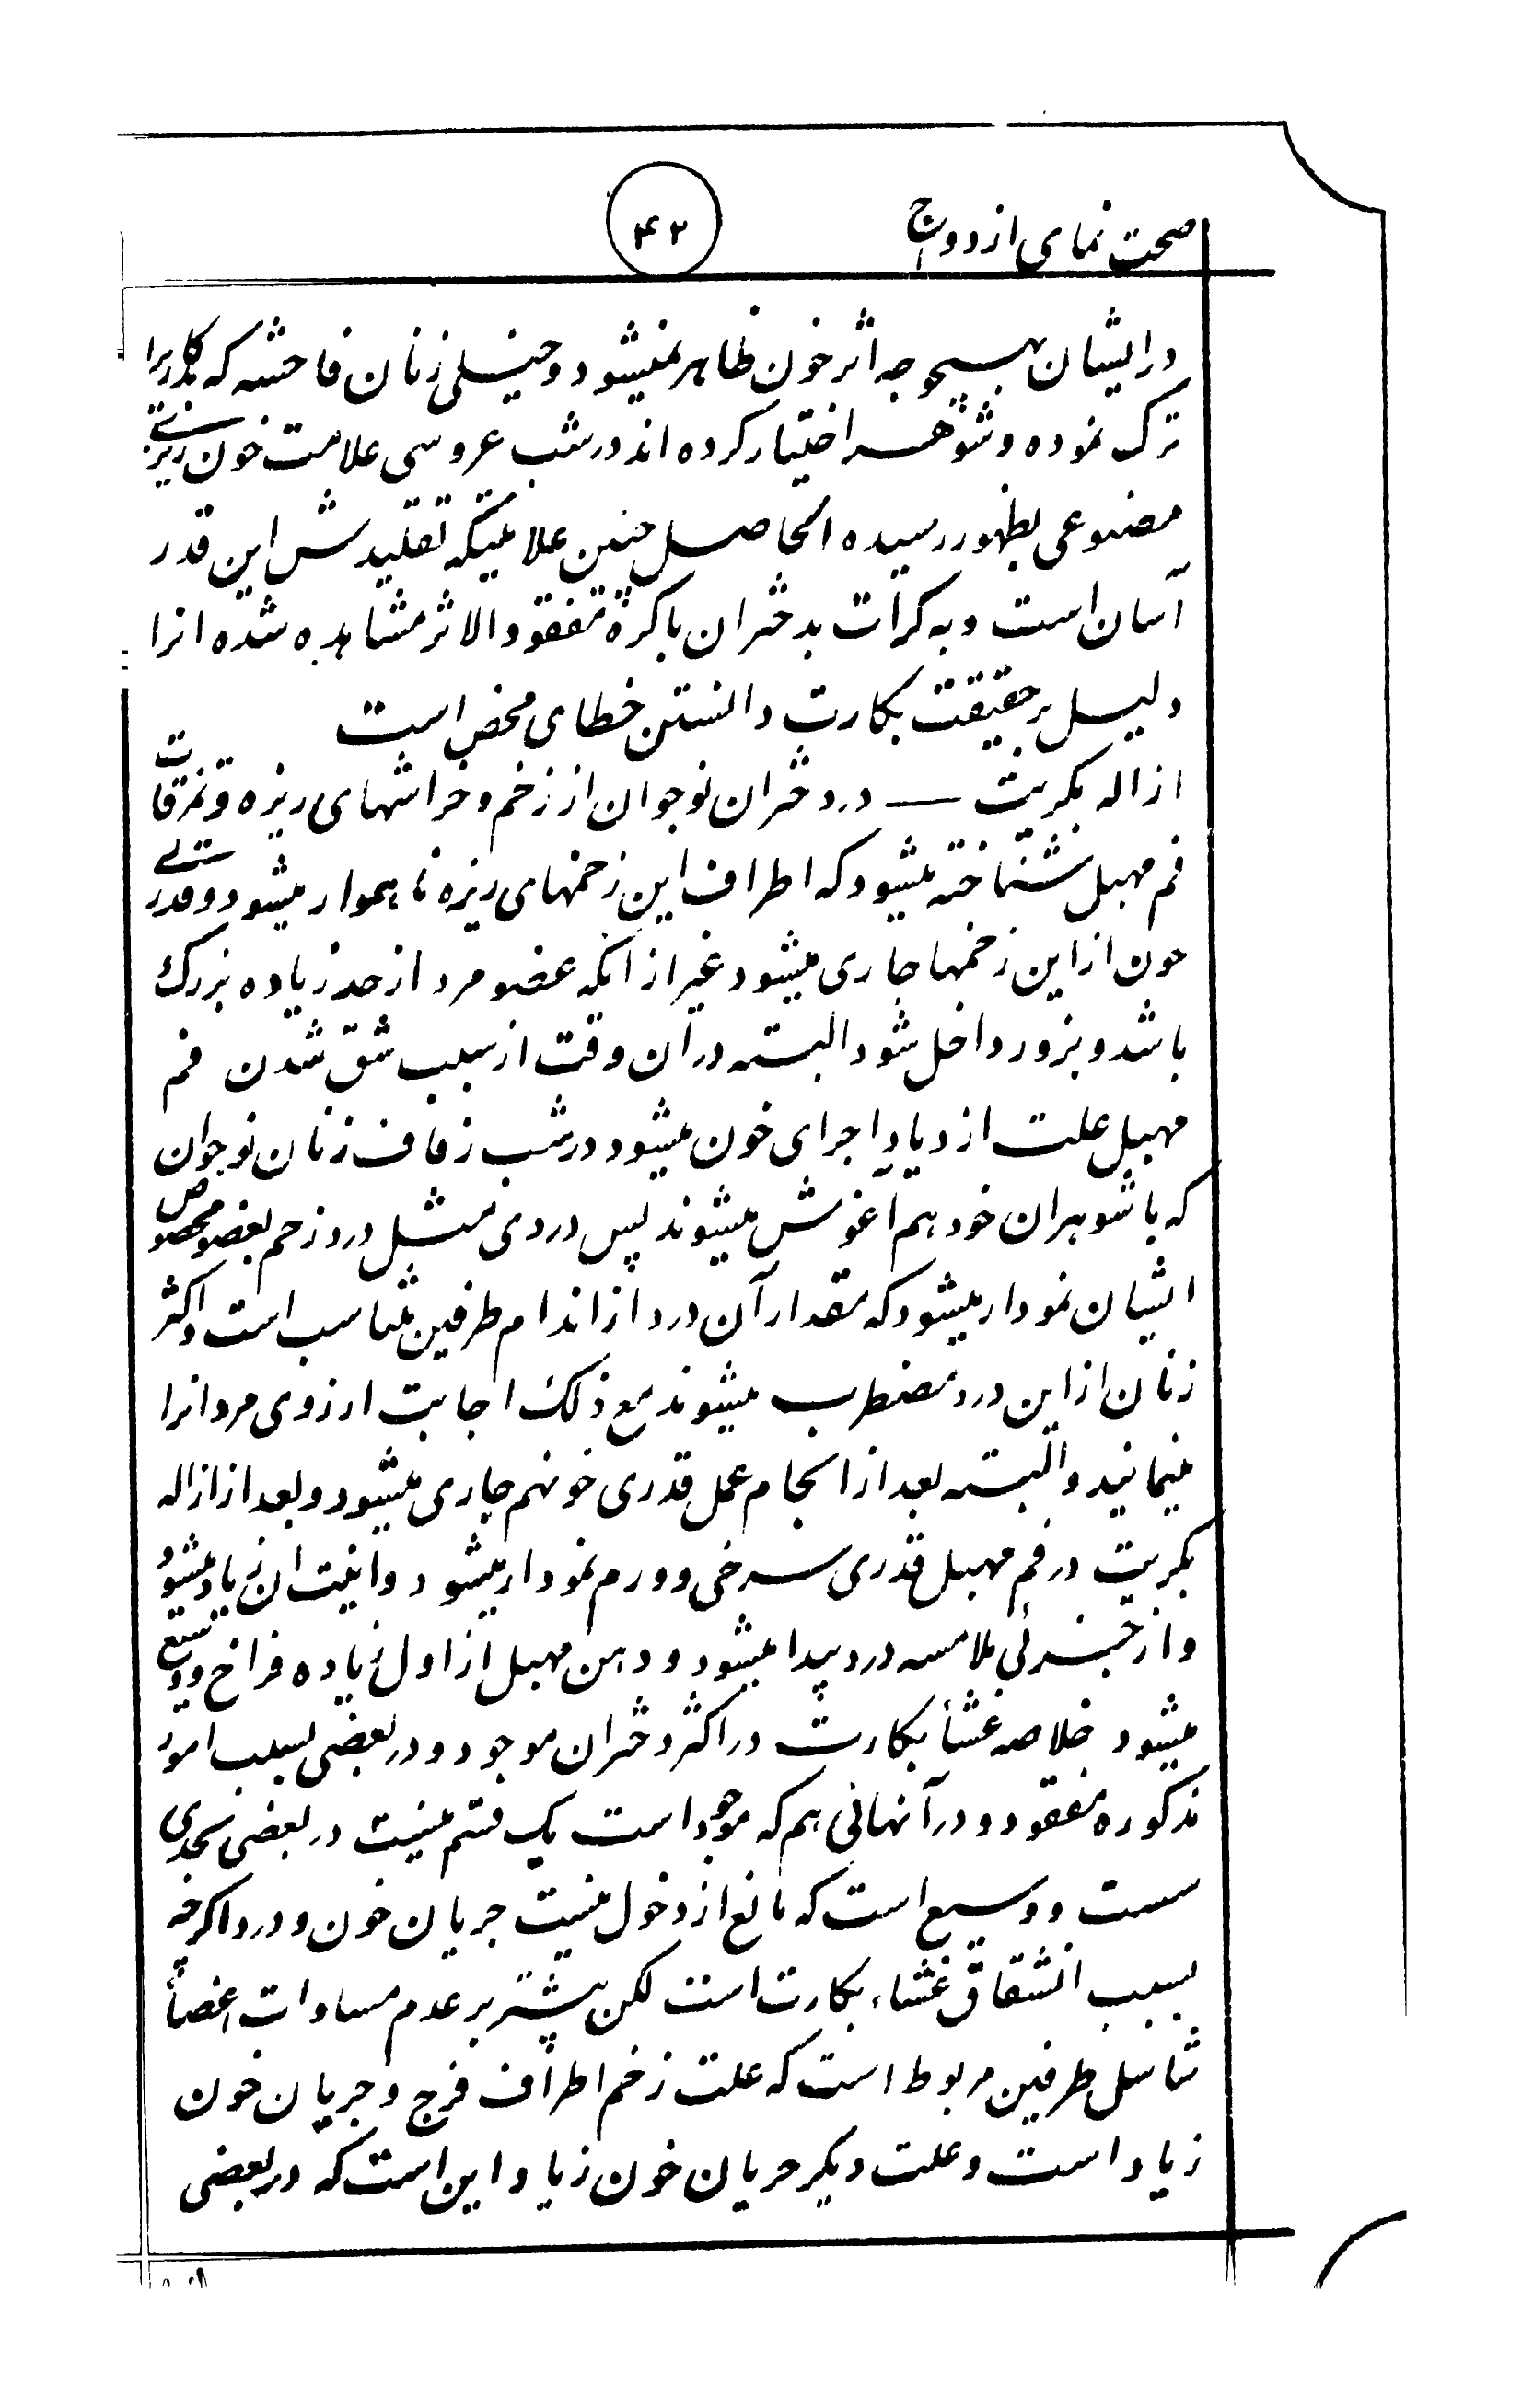 صحت نمای ازدواج
۴۲
در ایشان بهیچوجه اثر خون ظاهر نمیشود و خیلی زنان فاحشه که کار بد را
ترک نموده و شوهر اختیار کرده اند در شب عروسی علامت خون ریزی
مصنوعی بظهور رسیده الحاصل چنین علامتیکه تقلیدش این قدر
آسان است و به کرات بدختران باکرة مفقود الاثر مشاهده شده انرا
دلیل بر حقیقت بکارت دانستن خطای محض است
ازاله بکریت — در دختران نوجوان از زخم و خراشهای ریزه و تمزقات
فم مهبل شناخته میشود که اطراف این زخمهای ریزه نا هموار میشود و قدر
خون از این زخمها جاری میشود غیر از آنکه عضو مرد از حد زیاده بزرک
باشد و بزور داخل شود البته در آن وقت از سبب شق شدن فم
مهبل علت ازدیاد اجرای خون میشود در شب زفاف زنان نوجوان
که با شوهران خود هم آغوش میشوند پس دردی مثل درد زخم بعضو مخصوص
ایشان نمودار میشود که مقدار آن درد از اندام طرفین متناسب است اکثر
زنان از این درد مضطرب میشوند مع ذلک اجابت ارزوی مردانرا
مینمایند و البته بعد از انجام عمل قدری خونهم جاری میشود و بعد از ازاله
بکریت در فم مهبل قدری سرخی و ورم نمودار میشود و اذیت ان زیاد میشود
و از جزئی ملامسه درد پیدا میشود و دهن مهبل از اول زیاده فراخ و وسیع
میشود خلاصه غشأ بکارت در اکثر دختران موجود و در بعضی بسبب امور
مذکوره مفقود و در آنهائی هم که موجود است یک قسم نیست در بعضی بحدی
سست و وسیع است که مانع از دخول نیست جریان خون و درد اکرچه
بسبب انشقاق غشاء بکارت است لکن بیشتر بر عدم مساوات اعضأ
تناسل طرفین مربوط است که علت زخم اطراف فرج و جریان خون
زیاد است و علت دیکر جریان خون زیاد این است که در بعضی